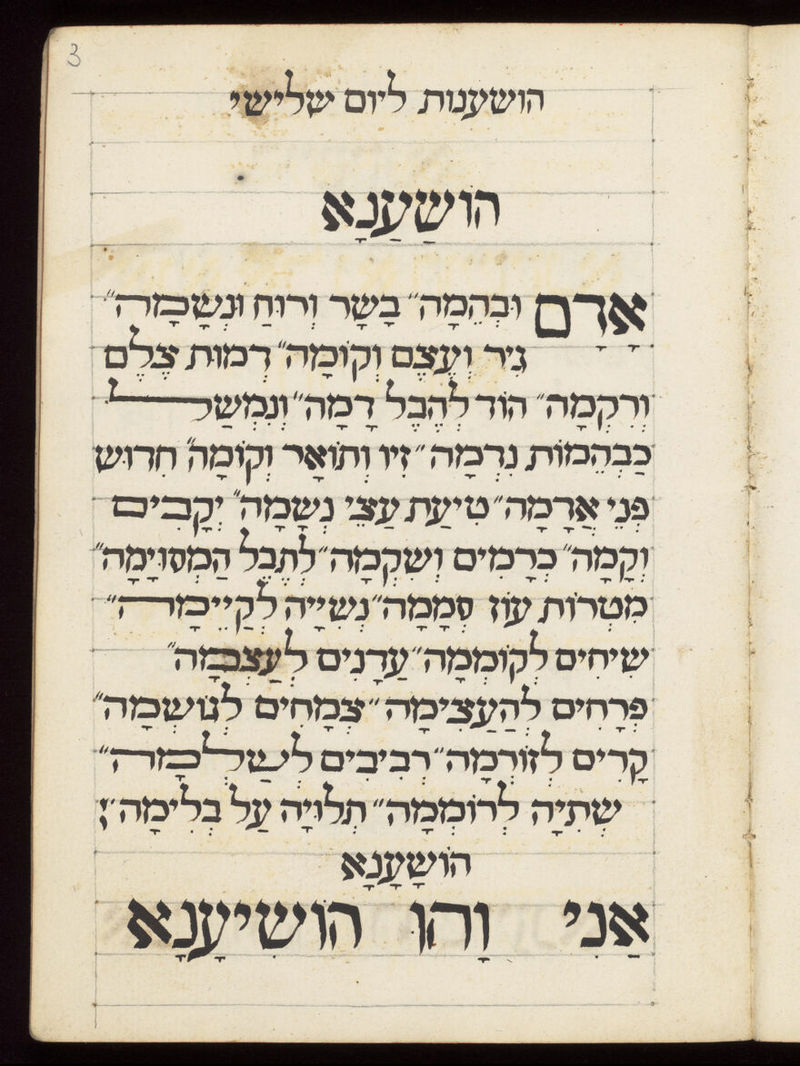 3
הושענות ליום שלישי
הוֹשַׁעֲנָא
אָדָם וּבְהֵמָה״ בָּשָׂר וְרוּחַ וּנְשָׁמָה״
גִּיד וְעֶצֶם וְקוֹמָה״ דְּמוּת צֶלֶם
וְרִקְמָה״ הוֹד לְהֶבֶל דָּמָה״ וְנִמְשַׁל
כַּבְּהֵמוֹת נִדְמָה״ זִיו וְתוֹאַר וְקוֹמָה״ חִדּוּשׁ
פְּנֵי אֲדָמָה״ טִיעַת עֲצֵי נְשָׁמָה״ יְקָבִים
וְקָמָה״ כְּרָמִים וְשִׁקְמָה״ לְתֶבֶל הַמְסוּיָּמָה״
מִטְרוֹת עוֹז סְמָמָה״ נְשִׁיָּיה לְקַיְּימָה״
שִׂיחִים לְקוֹמְמָהּ״ עֲדָנִים לְעָצְמָה״
פְּרָחִים לְהַעֲצִימָה״ צְמָחִים לְגוֹשְׁמָהּ״
קָרִים לְזוֹרְמָהּ״ רְבִיבִים לְשַׁלְּמָהּ״
שְׁתִיָּה לְרוֹמְמָהּ״ תְּלוּיָה עַל בְּלִימָה׃
הוֹשַׁעֲנָא
אֲנִי וָהוּ הוֹשִׁיעָנָא